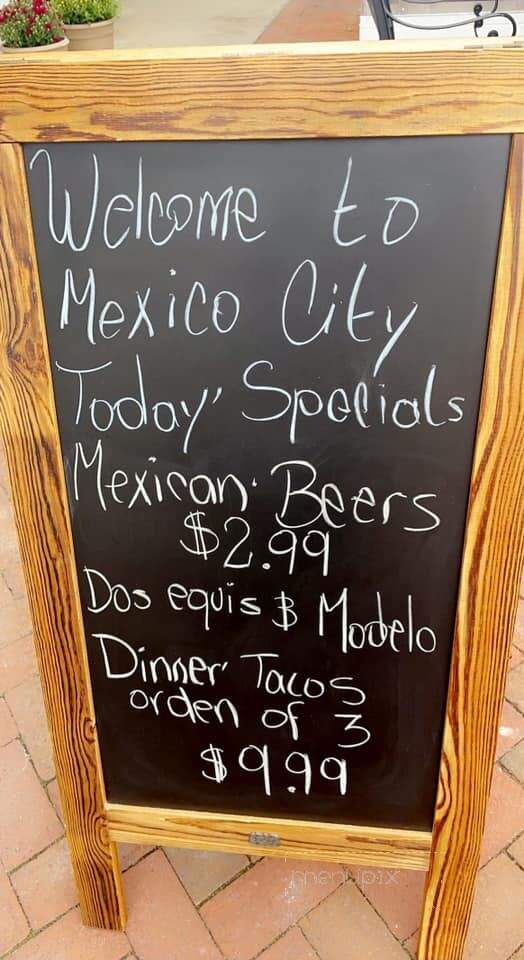 Welcome to
Mexico City
Today' Specials
Mexican Beers
$2.99
Dos equis & Modelo
Dinner Tacos
orden of 3
$9.99
menupix